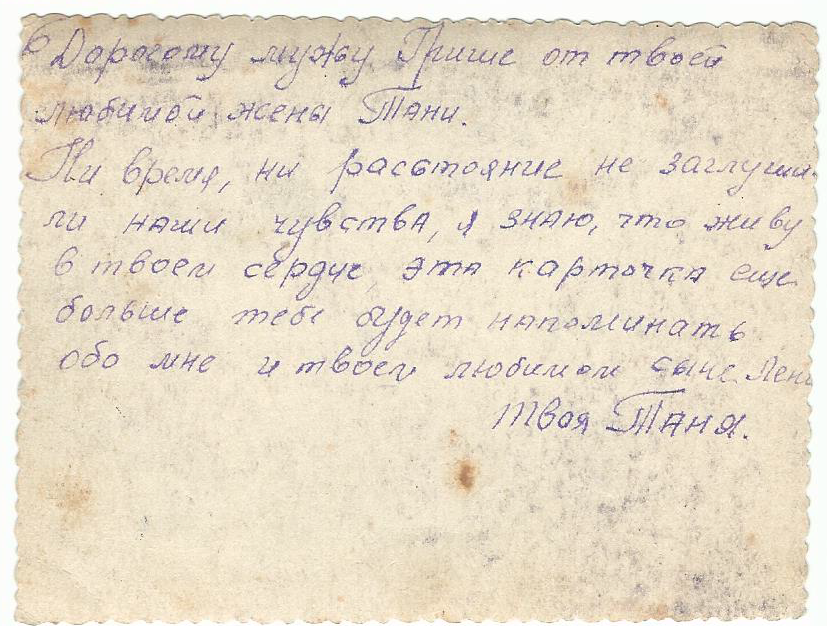 Дорогому мужу Грише от твоей
любимой жены Тани.
Ни время, ни расстояние не заглуши-
ли наши чувства, я знаю, что живу
в твоем сердце, эта карточка еще
больше тебе будет напоминать
обо мне и твоем любимом сыне Лени
Твоя Таня.